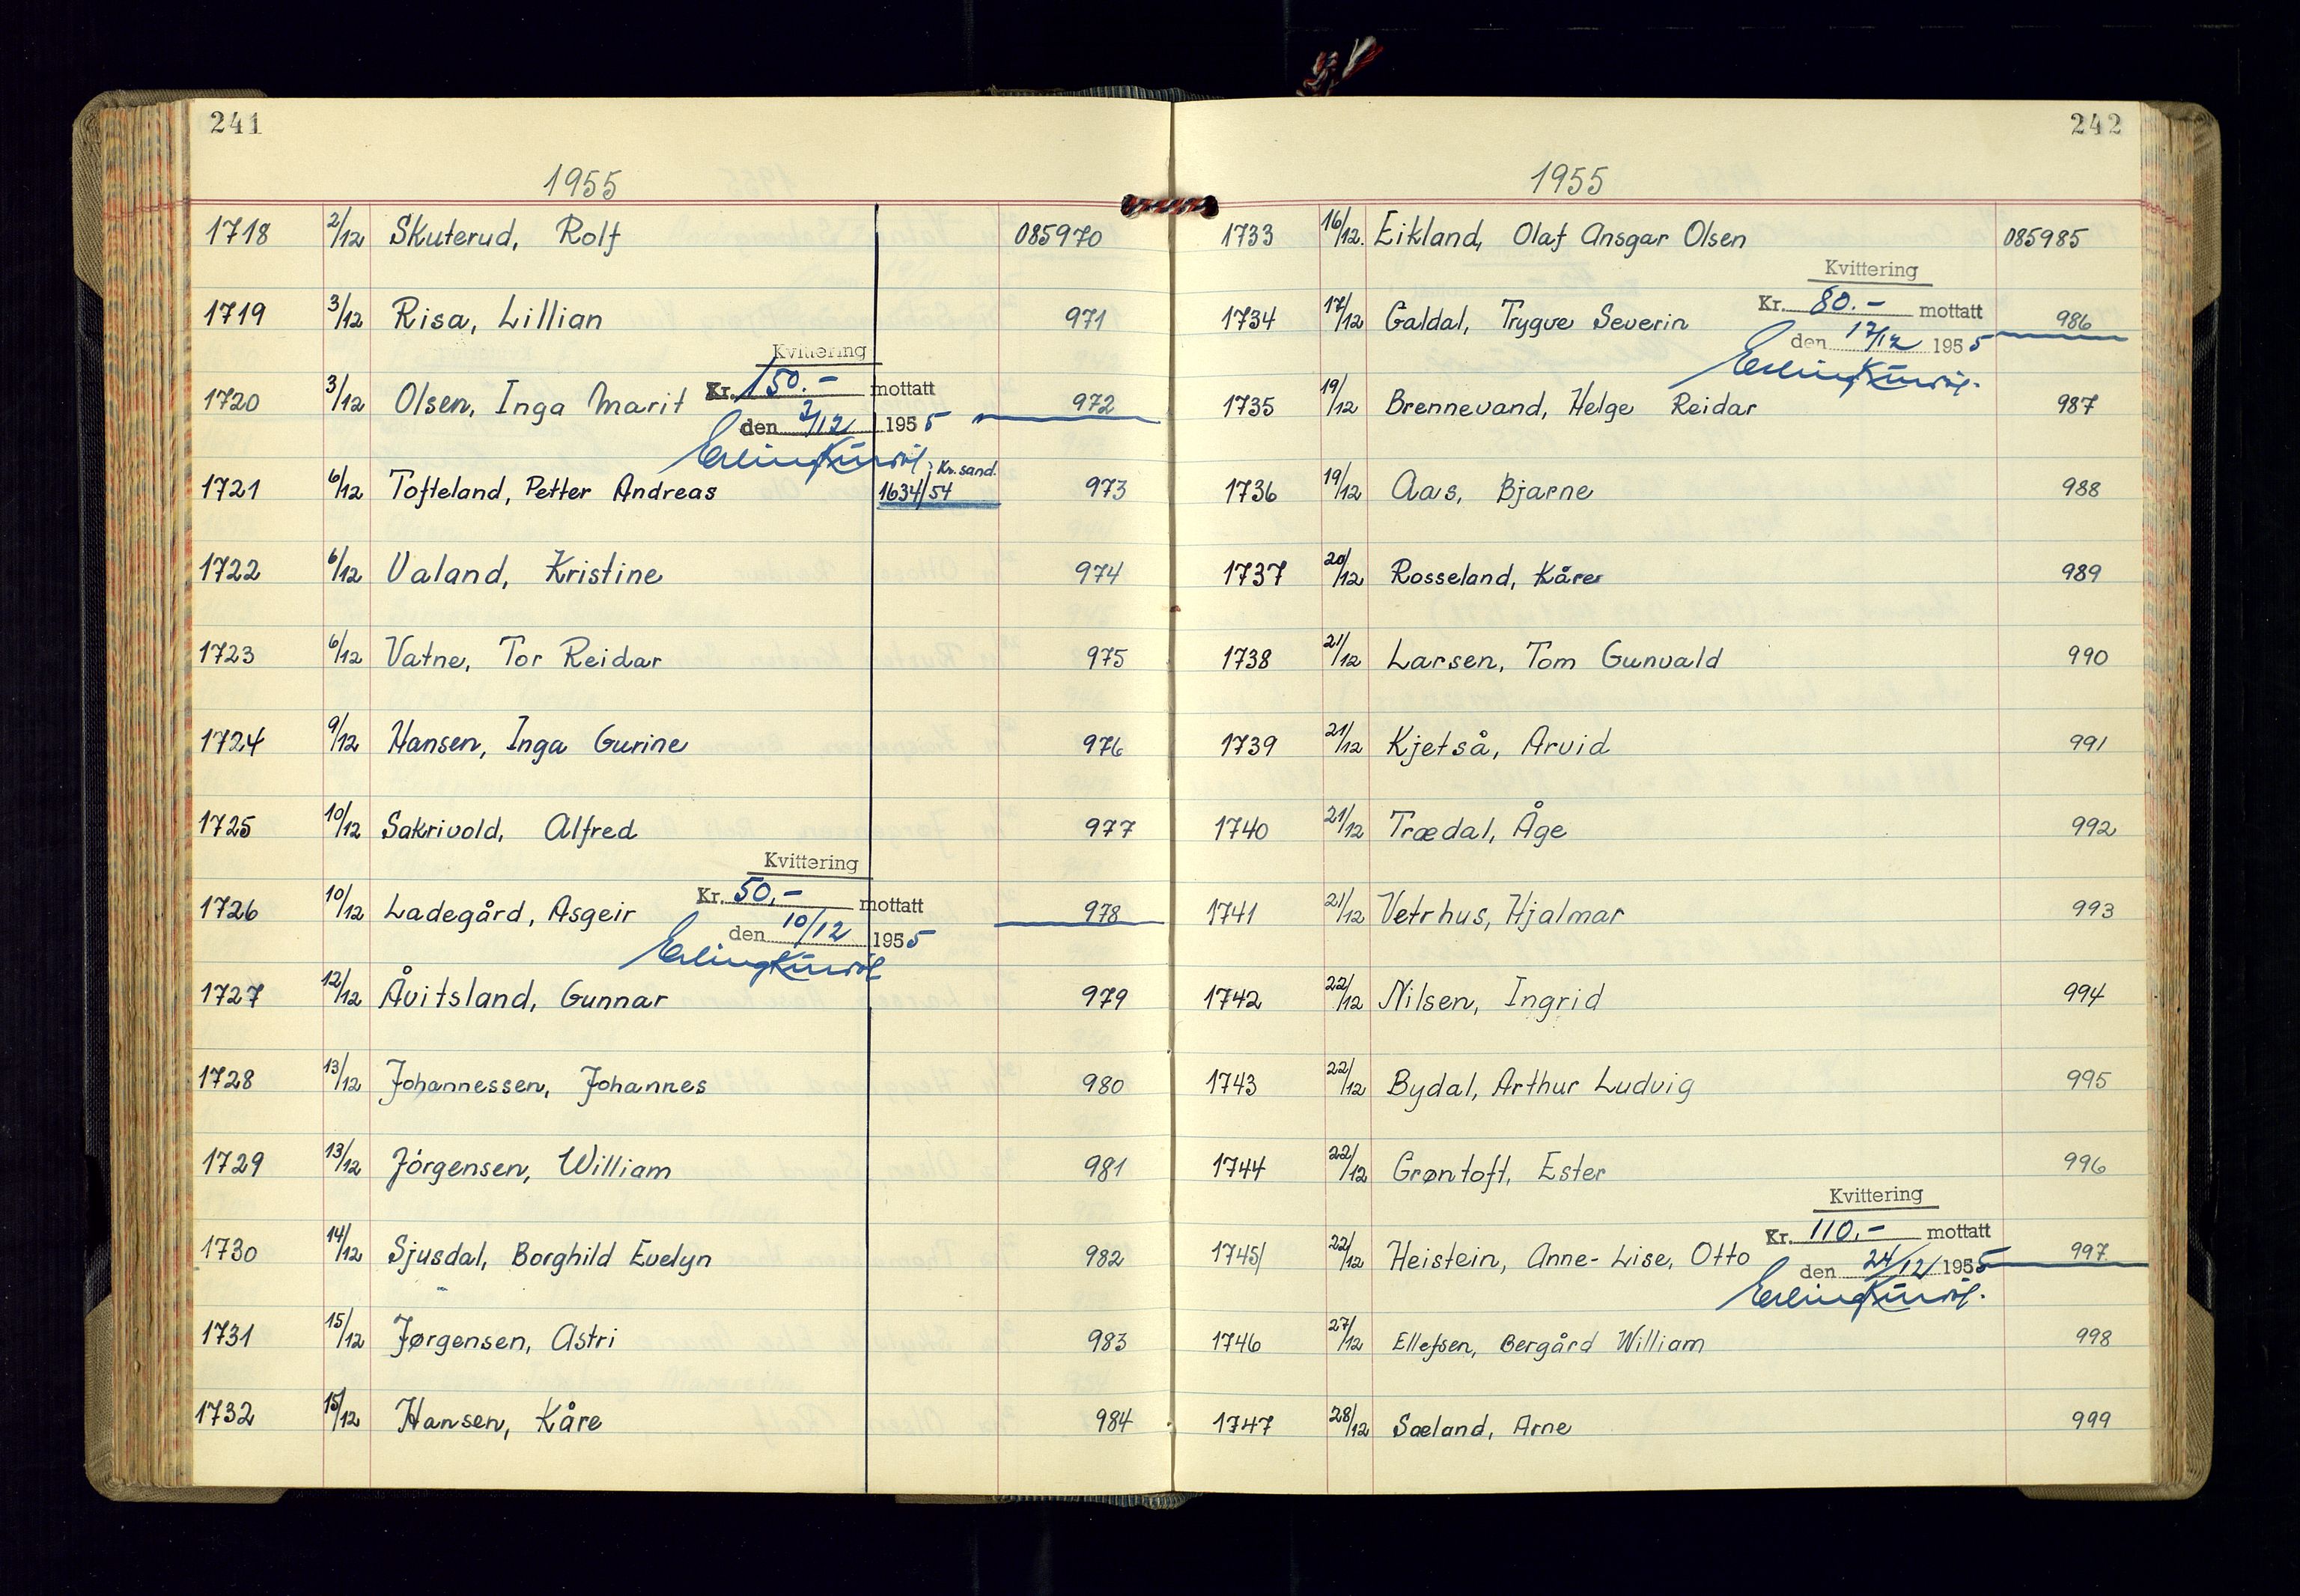 241
1955
1718 2/12 Skuterud, Rolf 085970
1719 3/12 Risa, Lillian 971
Kvittering
Kr. 150.- mottatt
1720 3/12 Olsen, Inga Marit 972
den 3/12 1955
Kr.sand.
1721 6/12 Tofteland, Petter Andreas 1634/54 973
1722 6/12 Valand, Kristine 974
1723 6/12 Vatne, Tor Reidar 975
1724 9/12 Hansen, Inga Gurine 976
1725 10/12 Sakrivold, Alfred 977
Kvittering
Kr. 50,- mottatt
1726 10/12 Ladegård, Asgeir 978
den 10/12 1955
1727 12/12 Åvitsland, Gunnar 979
1728 13/12 Johannessen, Johannes 980
1729 13/12 Jörgensen, William 981
1730 14/12 Sjusdal, Borghild Evelyn 982
1731 15/12 Jørgensen, Astri 983
1732 15/12 Hansen, Kåre 984
242
1955
1733 16/12. Eikland, Olaf Ansgar Olsen 085985
Kvittering
Kr. 80.- mottatt
1734 17/12 Galdal, Trygve Severin 986
den 17/12 1955
1735 19/12 Brennevand, Helge Reidar 987
1736 19/12 Aas, Bjarne 988
1737 20/12 Rosseland, Kåre 989
1738 21/12 Larsen, Tom Gunvald 990
1739 21/12 Kjetså, Arvid 991
1740 21/12 Trædal, Åge 992
1741 21/12 Vetrhus, Hjalmar 993
1742 22/12 Nilsen, Ingrid 994
1743 22/12 Bydal, Arthur Ludvig 995
1744 22/12 Grøntoft, Ester 996
Kvittering
Kr. 110,- mottatt
1745 22/12 Heistein, Anne-Lise, Otto 997
den 24/12 1955
1746 27/12 Ellefsen, Bergård William 998
1747 28/12 Sæland, Arne 999